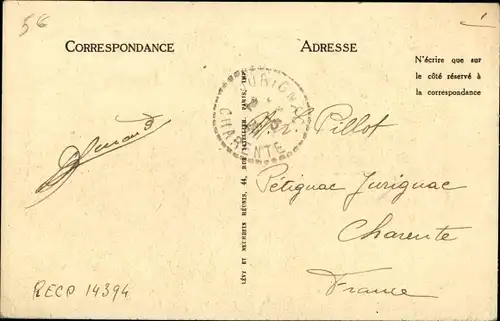 5€
CORRESPONDANCE
ADRESSE
N'écrire que sur
le côté réservé à
la correspondance
JURIGNAC
CHARENTE
Pillot
Pétignac Jurignac
Charente
France
LÉVY ET NEURDEIN RÉUNIS, 44, RUE LETELLIER, PARIS, IMP.
RECP 14394